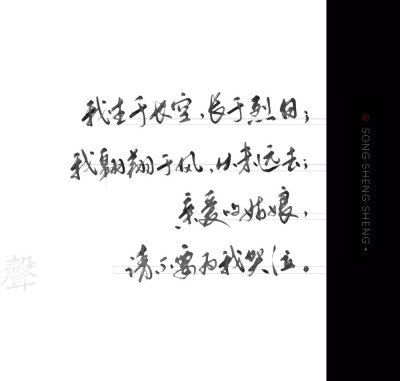 我生于长空，长于烈日；
我翱翔于风，从未远去；
亲爱的姑娘，
请不要为我哭泣。
聲
© SONG SHENG SHENG •